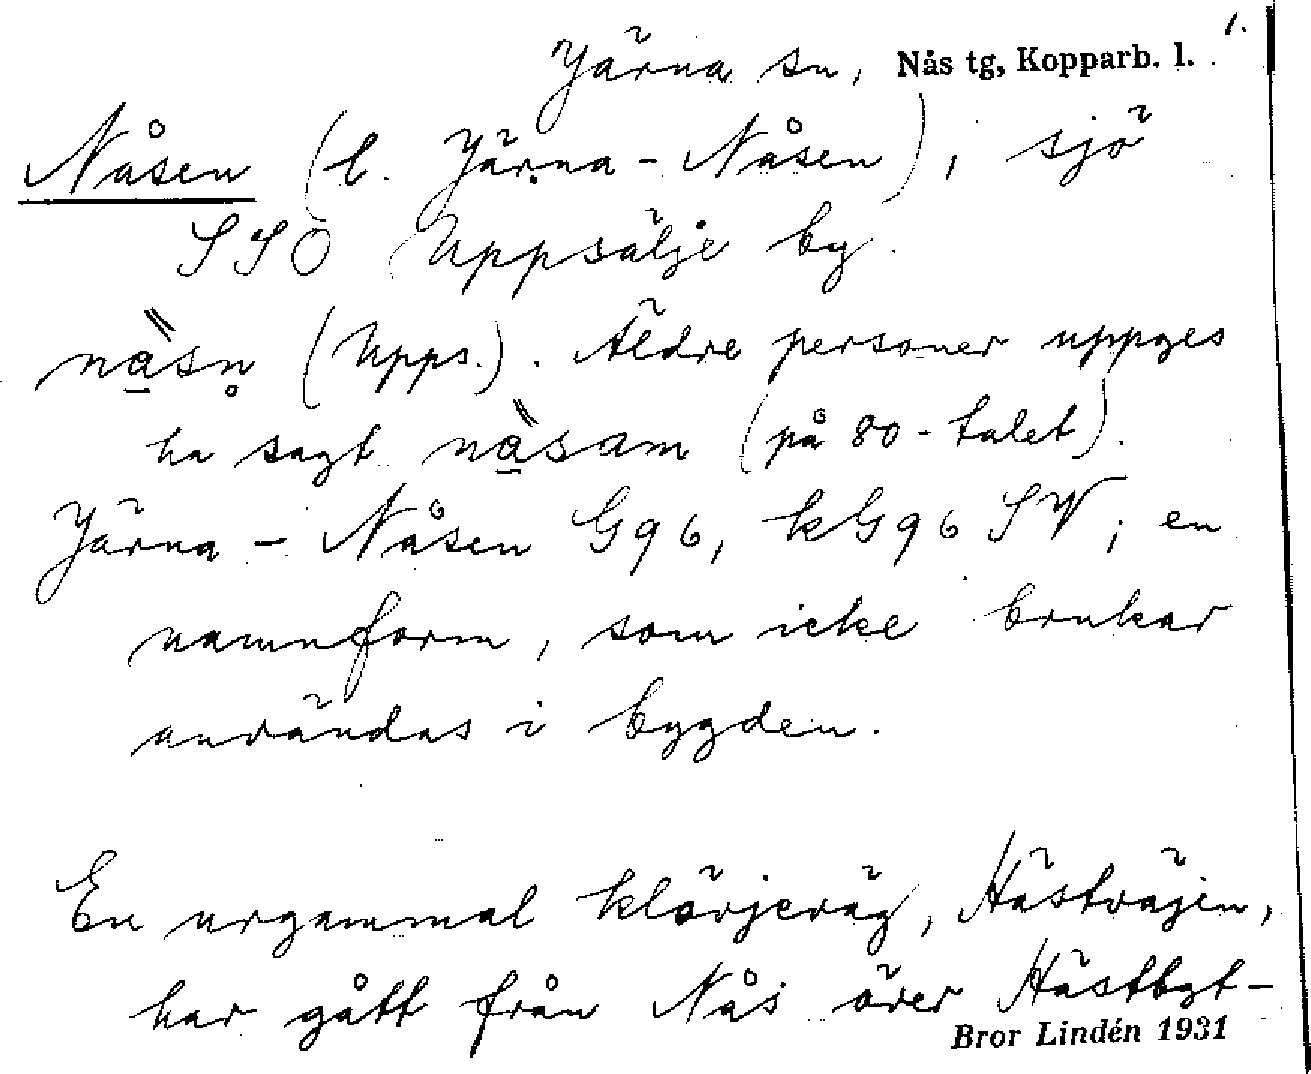 1.
Järna sn, Nås tg, Kopparb. l.
Nåsen (l. Järna-Nåsen), sjö
SSÖ Uppsälje by.
nàsn̥ (Upps.). Äldre personer uppges
ha sagt nàsam (på 80-talet).
Järna-Nåsen G96, kG96 SV; en
namnform, som icke brukar
användas i bygden.
En urgammal klövjeväg, Hästväjen,
har gått från Nås över Hästbyt-
Bror Lindén 1931